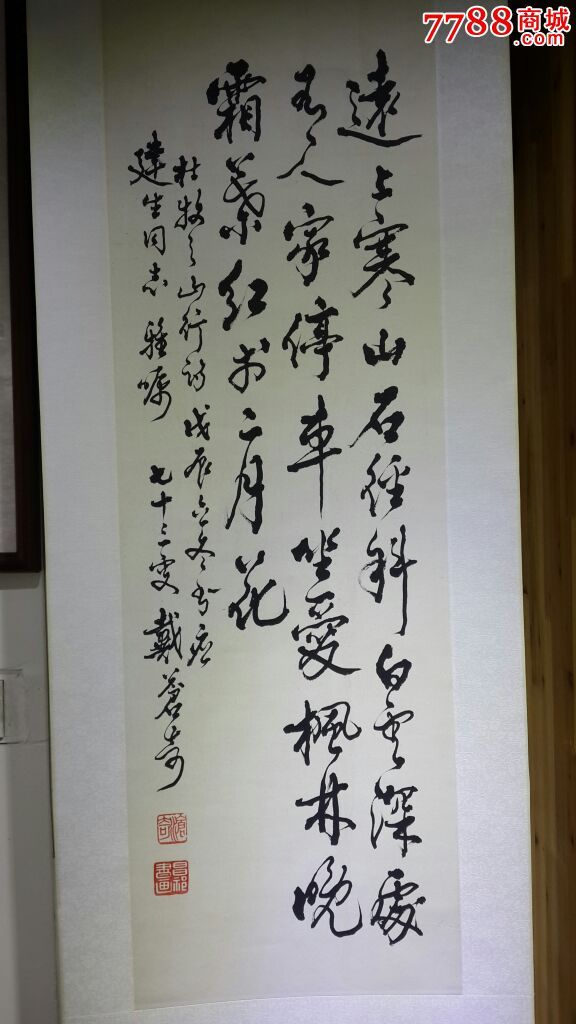 7788商城
.com
遠上寒山石徑斜白雲深處
有人家停車坐愛楓林晚
霜葉紅於二月花
杜牧之山行詩戊辰立冬書應
建生同志雅嘱 七十二叟戴蒼奇
滄奇
書画